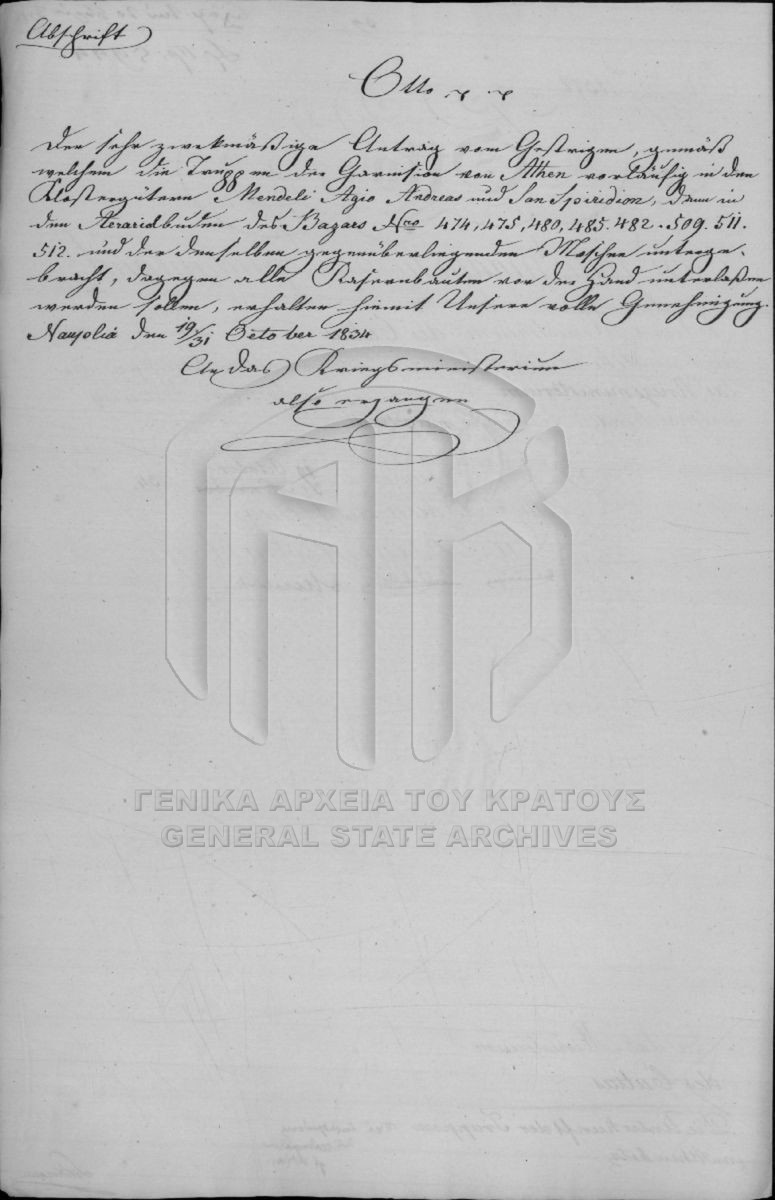 Abschrift
Otto
Der sehr zwekmäßige Antrag vom Gestrigen, gemäß
welchem die Truppen der Garnison von Athen vorläufig in den
Klostergütern Mendeli Agio Andreas und San Spiridion, dann in
den Aerarialbuden des Bazars Nro 474, 475, 480, 485. 482. 509. 511.
512. und der denselben gegenüberliegenden Moschee unterge-
bracht, dagegen alle Kasernbauten vor der Hand unterlaßen
werden sollen, erhalten hiemit Unsere volle Genehmigung.
Nauplia den 19/31 October 1834
An das Kriegsministerium
also ergangen
ΓΕΝΙΚΑ ΑΡΧΕΙΑ ΤΟΥ ΚΡΑΤΟΥΣ
GENERAL STATE ARCHIVES